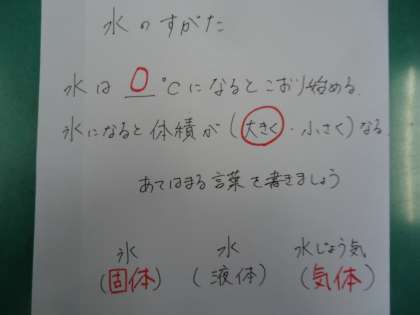 水のすがた
水は 0 ℃になるとこおり始める
氷になると体積が(大きく・小さく)なる
あてはまる言葉を書きましょう
氷 水 水じょう気
(固体) (液体) (気体)